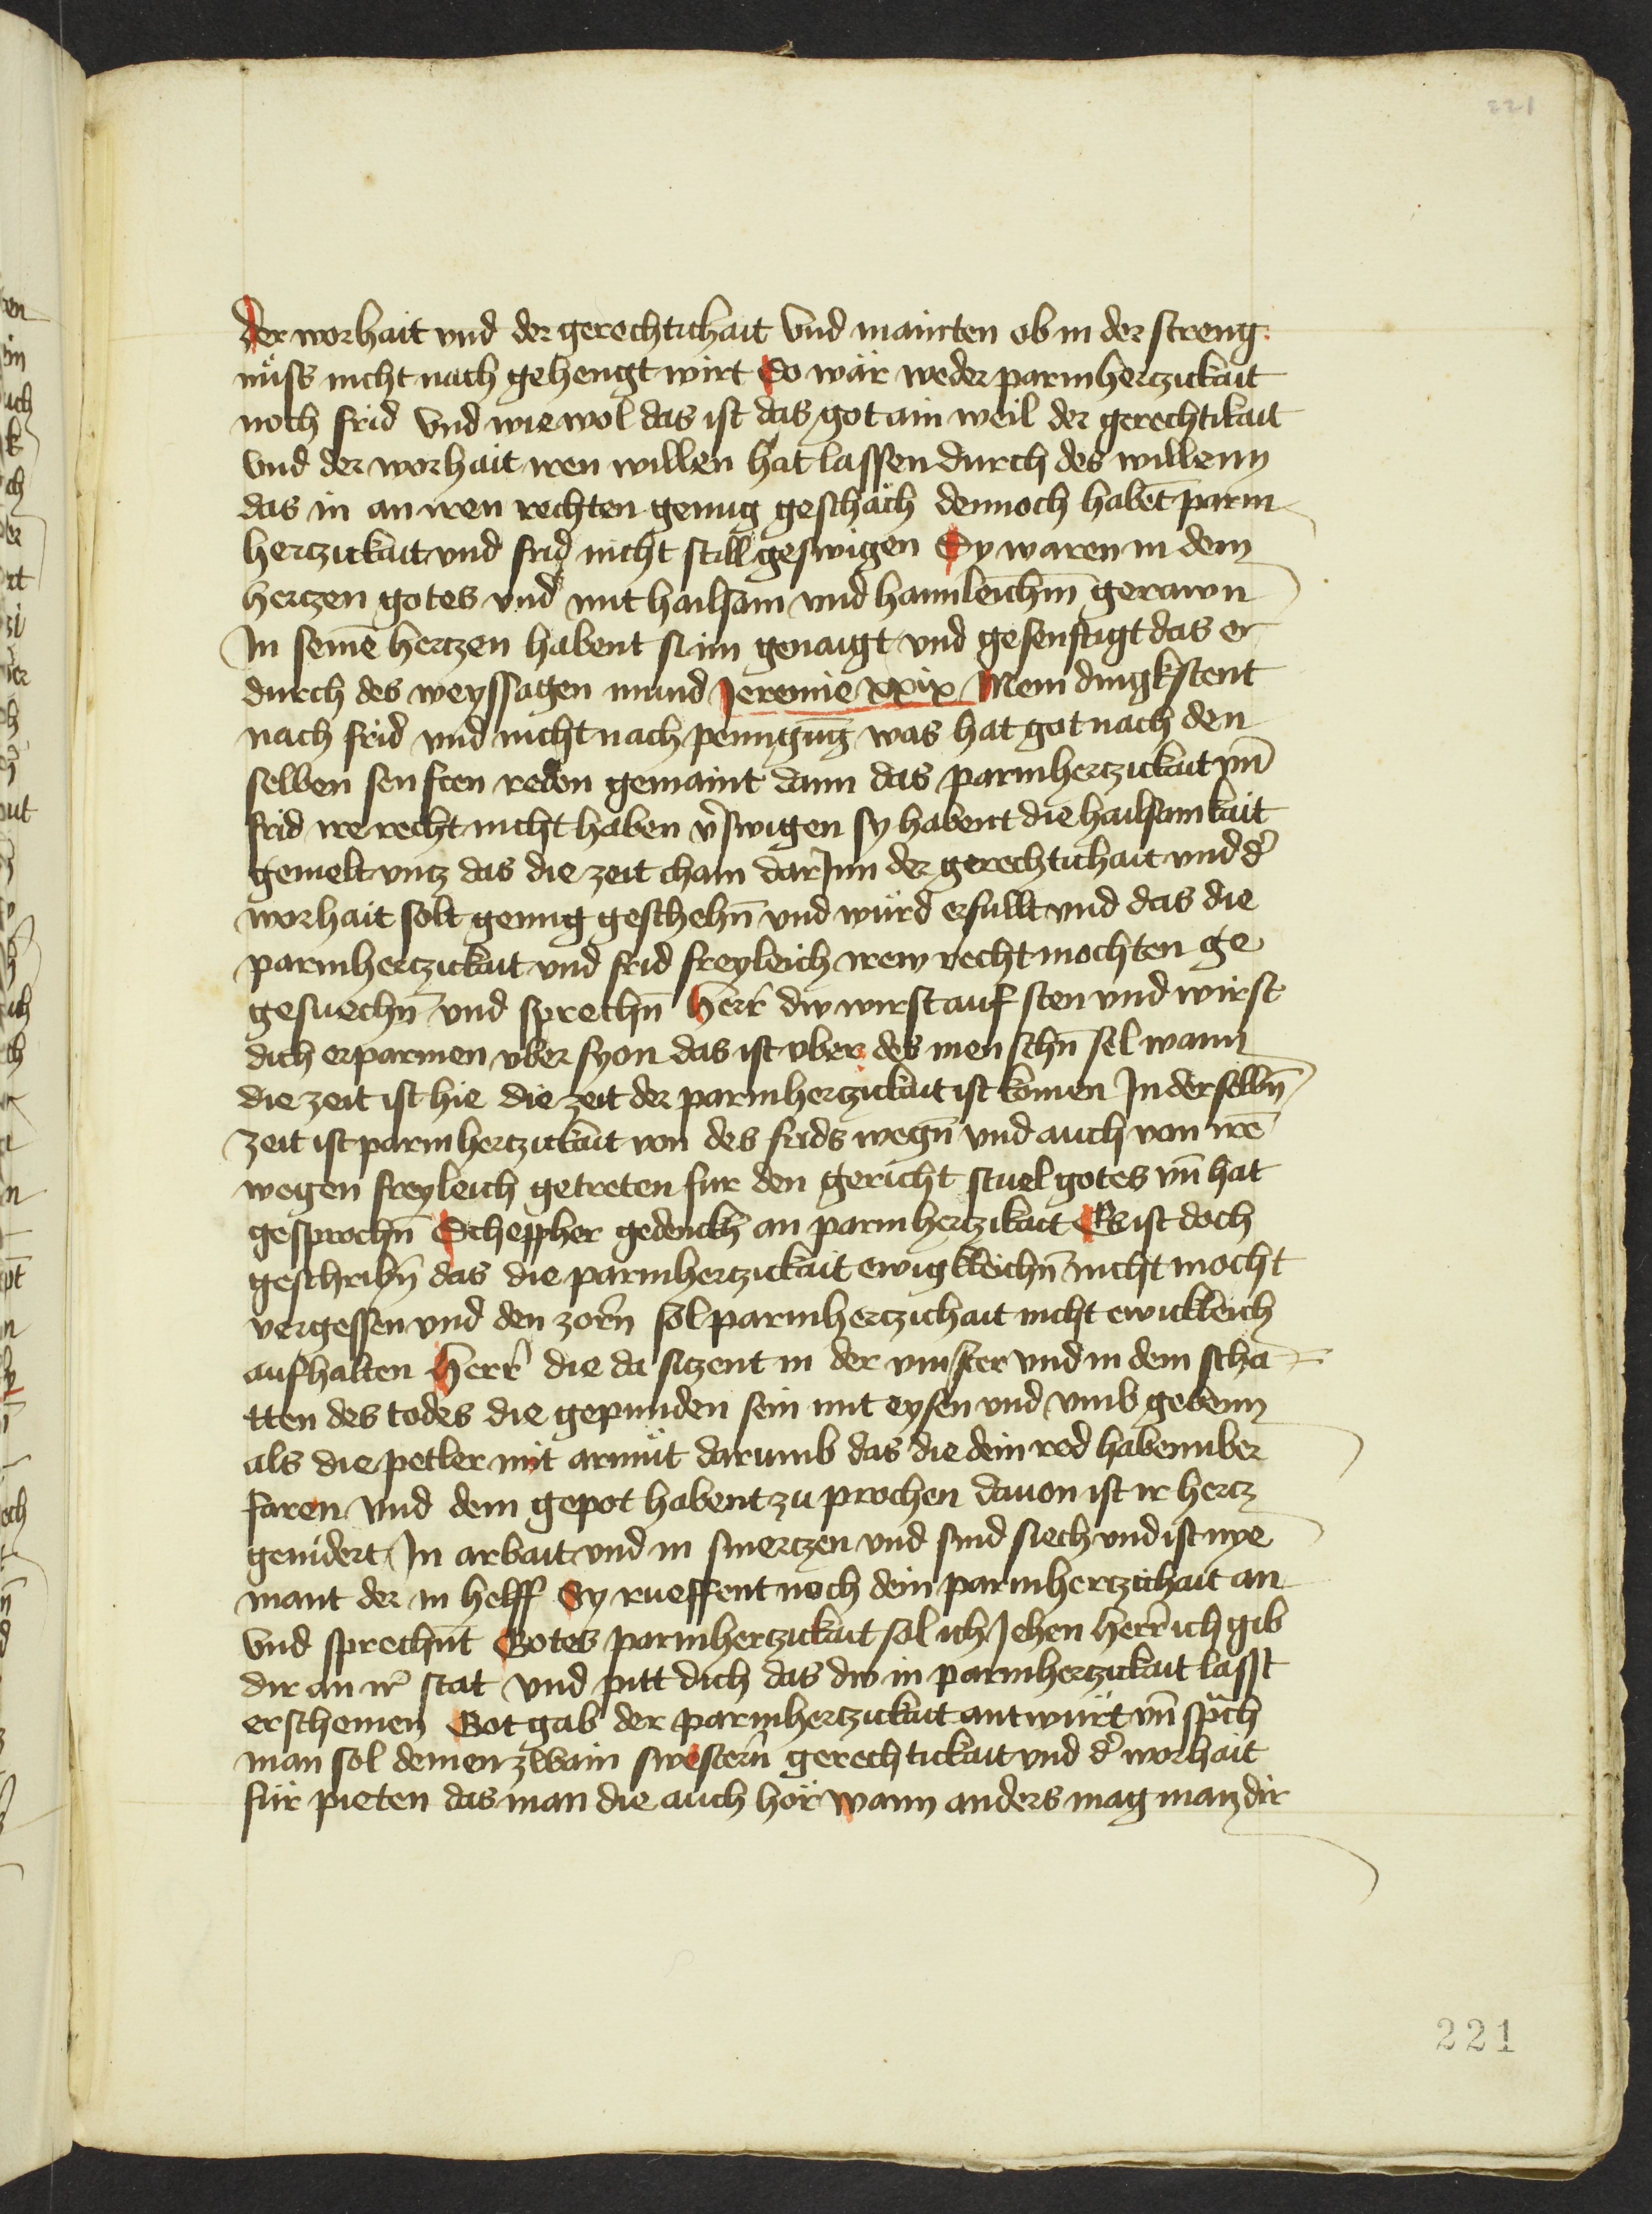 221
der worhait vnd der gerechtichait Vnd mainten ob in der streng
nüss nicht nach gehengt wirt So wär weder parmhertzickait
noch frid Vnd wie wol das ist das got ain weil der gerechtikait
Vnd der worhait iren willen hat lassen durch des willenn
das in an iren rechten genug geschäch dennoch habēt parm
hertzickait vnd frid nicht still geswigen Sy waren in dem
hertzen gotes vnd mit hailsam vnd haimleichm̄ gerawn
In seinē hertzen habent si im genaigt vnd gesenftigt das er
durch des weyssagen mund Jeremie xxix Mein dingk stent
nach frid vnd nicht nach peinigūg was hat got nach den
selben senften reden gemaint dann das parmhertzickait vn̄
frid ire recht nicht haben v̉swigen sy habent die hailsamkait
gemelt vntz das die zeit cham dar Inn der gerechtichait vnd d̉
worhait solt genug geschehn̄ vnd würd erfullt vnd das die
parmhertzickait vnd frid freyleich irew recht mochten ge
gesuechn̄ vnd sprechn̄ Herr̄ dw wirst auf sten vnd wirst
dich erparmen vber syon das ist vber des menschn̄ sel wann
die zeit ist hie die zeit der parmhertzickait ist komen In der selbn̄
zeit ist parmhertzickait von des frids wegn̄ vnd auch von irē
wegen freyleich getreten fur den gericht stuel gotes vn̄ hat
gesprochn̄ Scheppher gedenckh an parmhertzikait Es ist doch
geschribn̄ das die parmhertzickait ewigkleichn̄ nicht mocht
vergessen vnd den zorn sol parmhertzichait nicht ewickleich
aufhalten Herr̄ die da sitzent in der vinster vnd in dem scha
tten des todes die gepunden sein mit eysen vnd vmb gebenn
als die petler mit armüt darumb das die dein red haben vber
faren vnd dem gepot habent zu prochen dauon ist ir hertz
genidert In arbait vnd in smertzen vnd sind siech vnd ist nye
mant der in helff Sy rueffent noch dein parmhertzichait an
Vnd sprechn̄t Gotes parmhertzickait sol ich Jehen herr̄ ich gib
dir an ir̉ stat vnd pitt dich das dw in parmhertzickait lasst
erscheinen Got gab der parmhertzickait antwürt vn̄ sp̄ch
man sol deinen zwain swestern̄ gerechtickait vnd d̉ worhait
für pieten das man die auch hör wann anders mag man dir
221